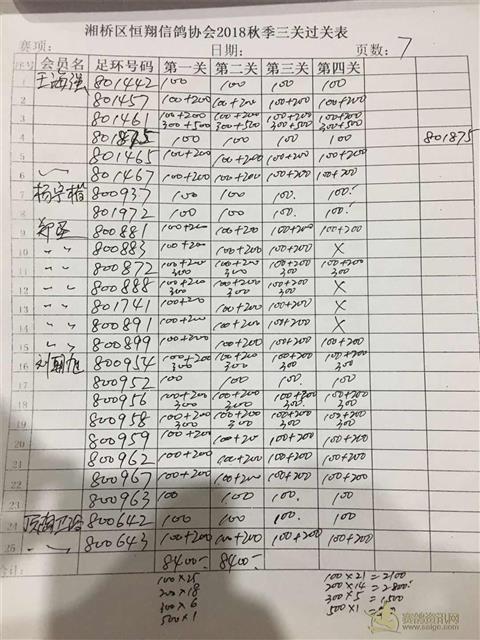 湘桥区恒翔信鸽协会2018秋季三关过关表
赛项: 日期: 页数: 7
序号 会员名 足环号码 第一关 第二关 第三关 第四关
1 王海强 801442 100 100 100 100
2 801457 100+200 100+200 100+200 100+200
3 801461 100+200 300+500 100+200 300+500 100+200 300+500 100+200 300+500
4 801875 100 100 100 100 801875
5 801465 100+200 100+200 100+200 100+200
6 801467 100+200 100+200 100+200 100+200
7 800937 100 100 100. 100.
8 801972 100 100 100. 100.
9 800881 100+200 100+200 100+200 100+200
10 〃 800883 100+200 100+200 100+200 X
11 〃 800872 100+200 300 100+200 300 100+200 300 100+200 300
12 〃 800888 100+200 300 100+200 300 100+200 300 X
13 〃 801741 100+200 100+200 100+200 X
14 〃 800891 100+200 100+200 100+200 X
15 〃 800899 100+200 100+200 100+200 100+200
16 800954 100+200 300 100+200 300 100+200 300 100+200 300
17 800952 100 100 100. 100
18 800956 100+200 300 100+200 300 100+200 300 100+200 300
19 800958 100+200 300 100+200 300 100+200 300 100+200 300
20 800959 100+200 100+200 100+200 100+200
21 800962 100+200 100+200 100+200 100+200
22 800967 100+200 100+200 100+200 100+200
23 800963 100 100 100. 100
24 800642 100 100 100. 100
25 800643 100+200 100+200 100+200 100+200
合计: 8400- 8400-
100×25 100×21=2100
200×18 200×14=2800
300×6 300×5=1500
500×1 500×1=
赛鸽资讯网
www.saige.com